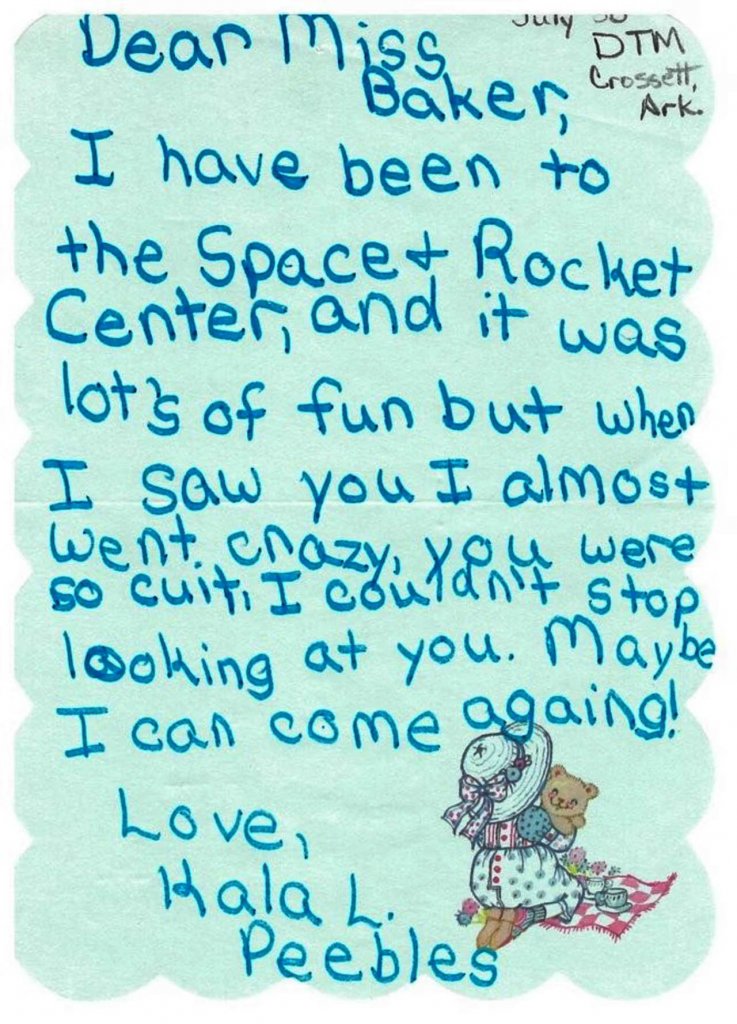 Dear Miss
Baker,
July
DTM
Crossett,
Ark.
I have been to
the Space + Rocket
Center, and it was
lot's of fun but when
I saw you I almost
went crazy, you were
so cuit, I couldn't stop
looking at you. Maybe
I can come againg!
Love,
Kala L.
Peebles